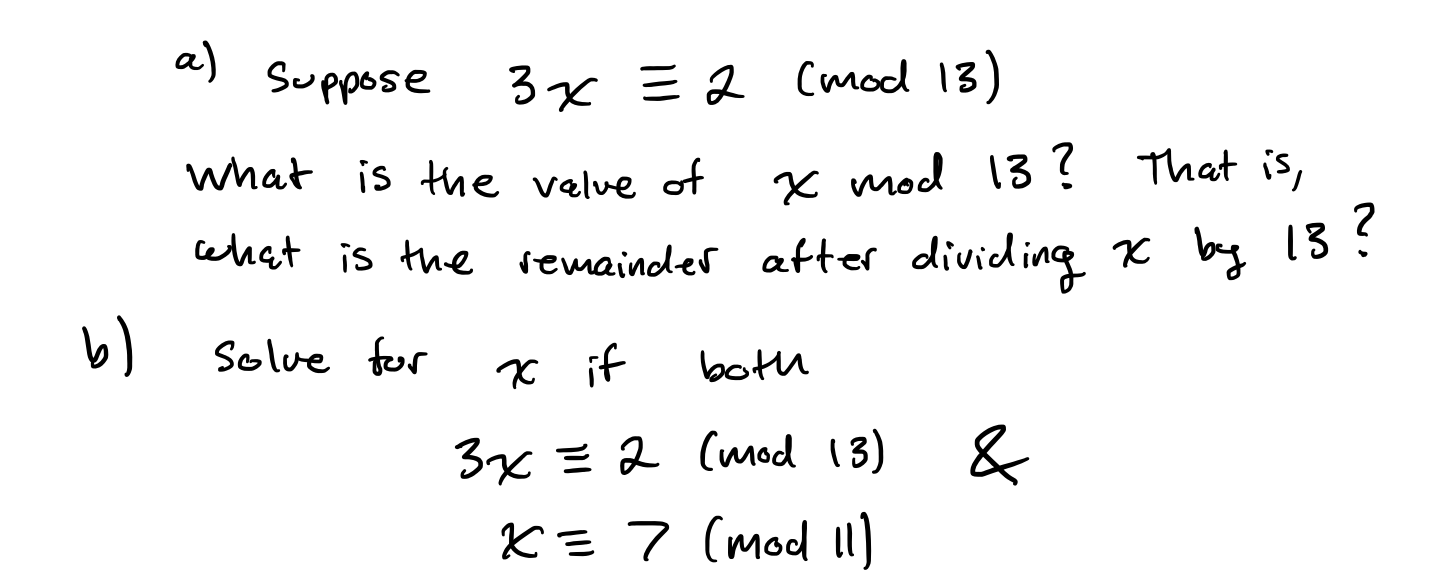 a) Suppose 3x ≡ 2 (mod 13)
What is the value of x mod 13? That is,
what is the remainder after dividing x by 13?
b) Solve for x if both
3x ≡ 2 (mod 13) &
x ≡ 7 (mod 11)